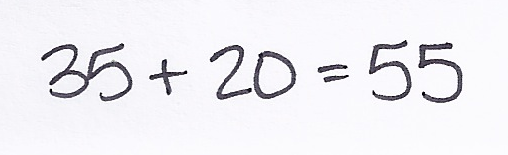 35 + 20 = 55